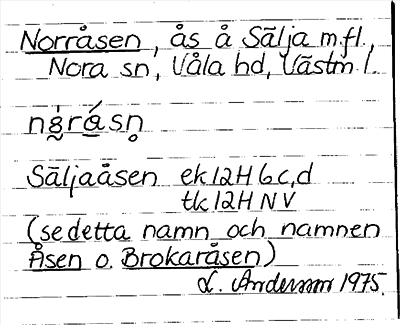 Norråsen, ås å Sälja m.fl.,
Nora sn, Våla hd, Västm l.
Säljaåsen ek 12H 6c,d
tk 12H NV
(se detta namn och namnen
Åsen o. Brokaråsen)
L. Anderson 1975.